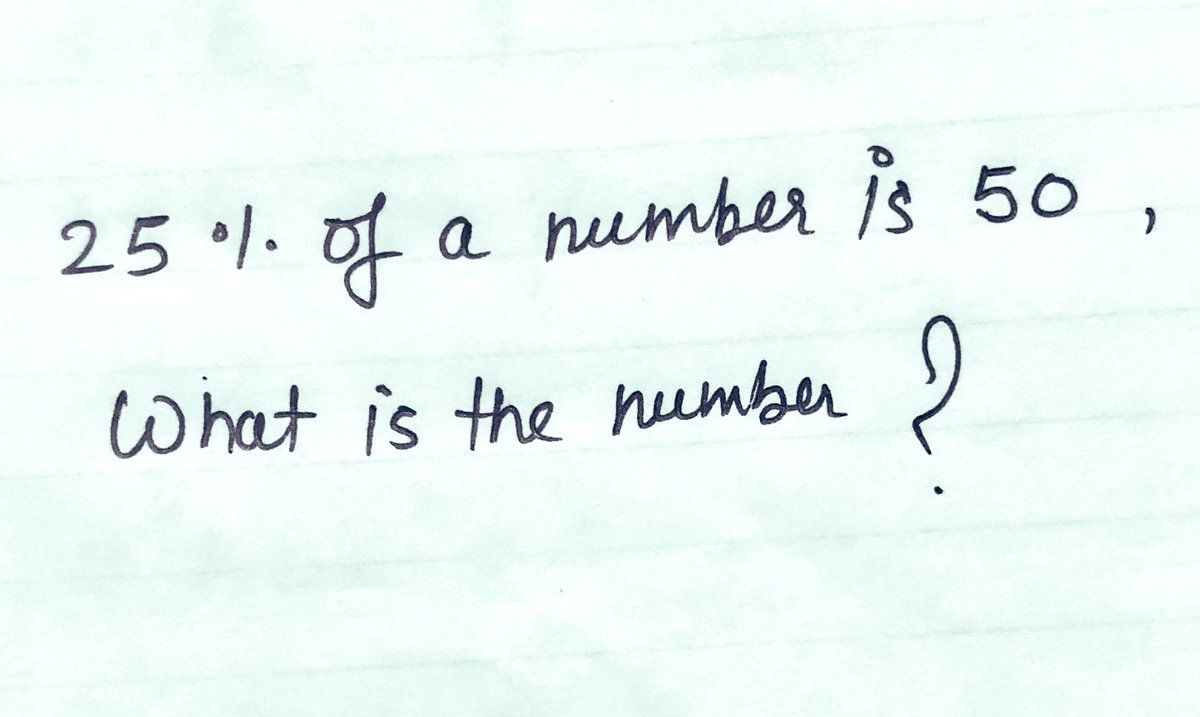 25 % of a number is 50 ,
What is the number ?